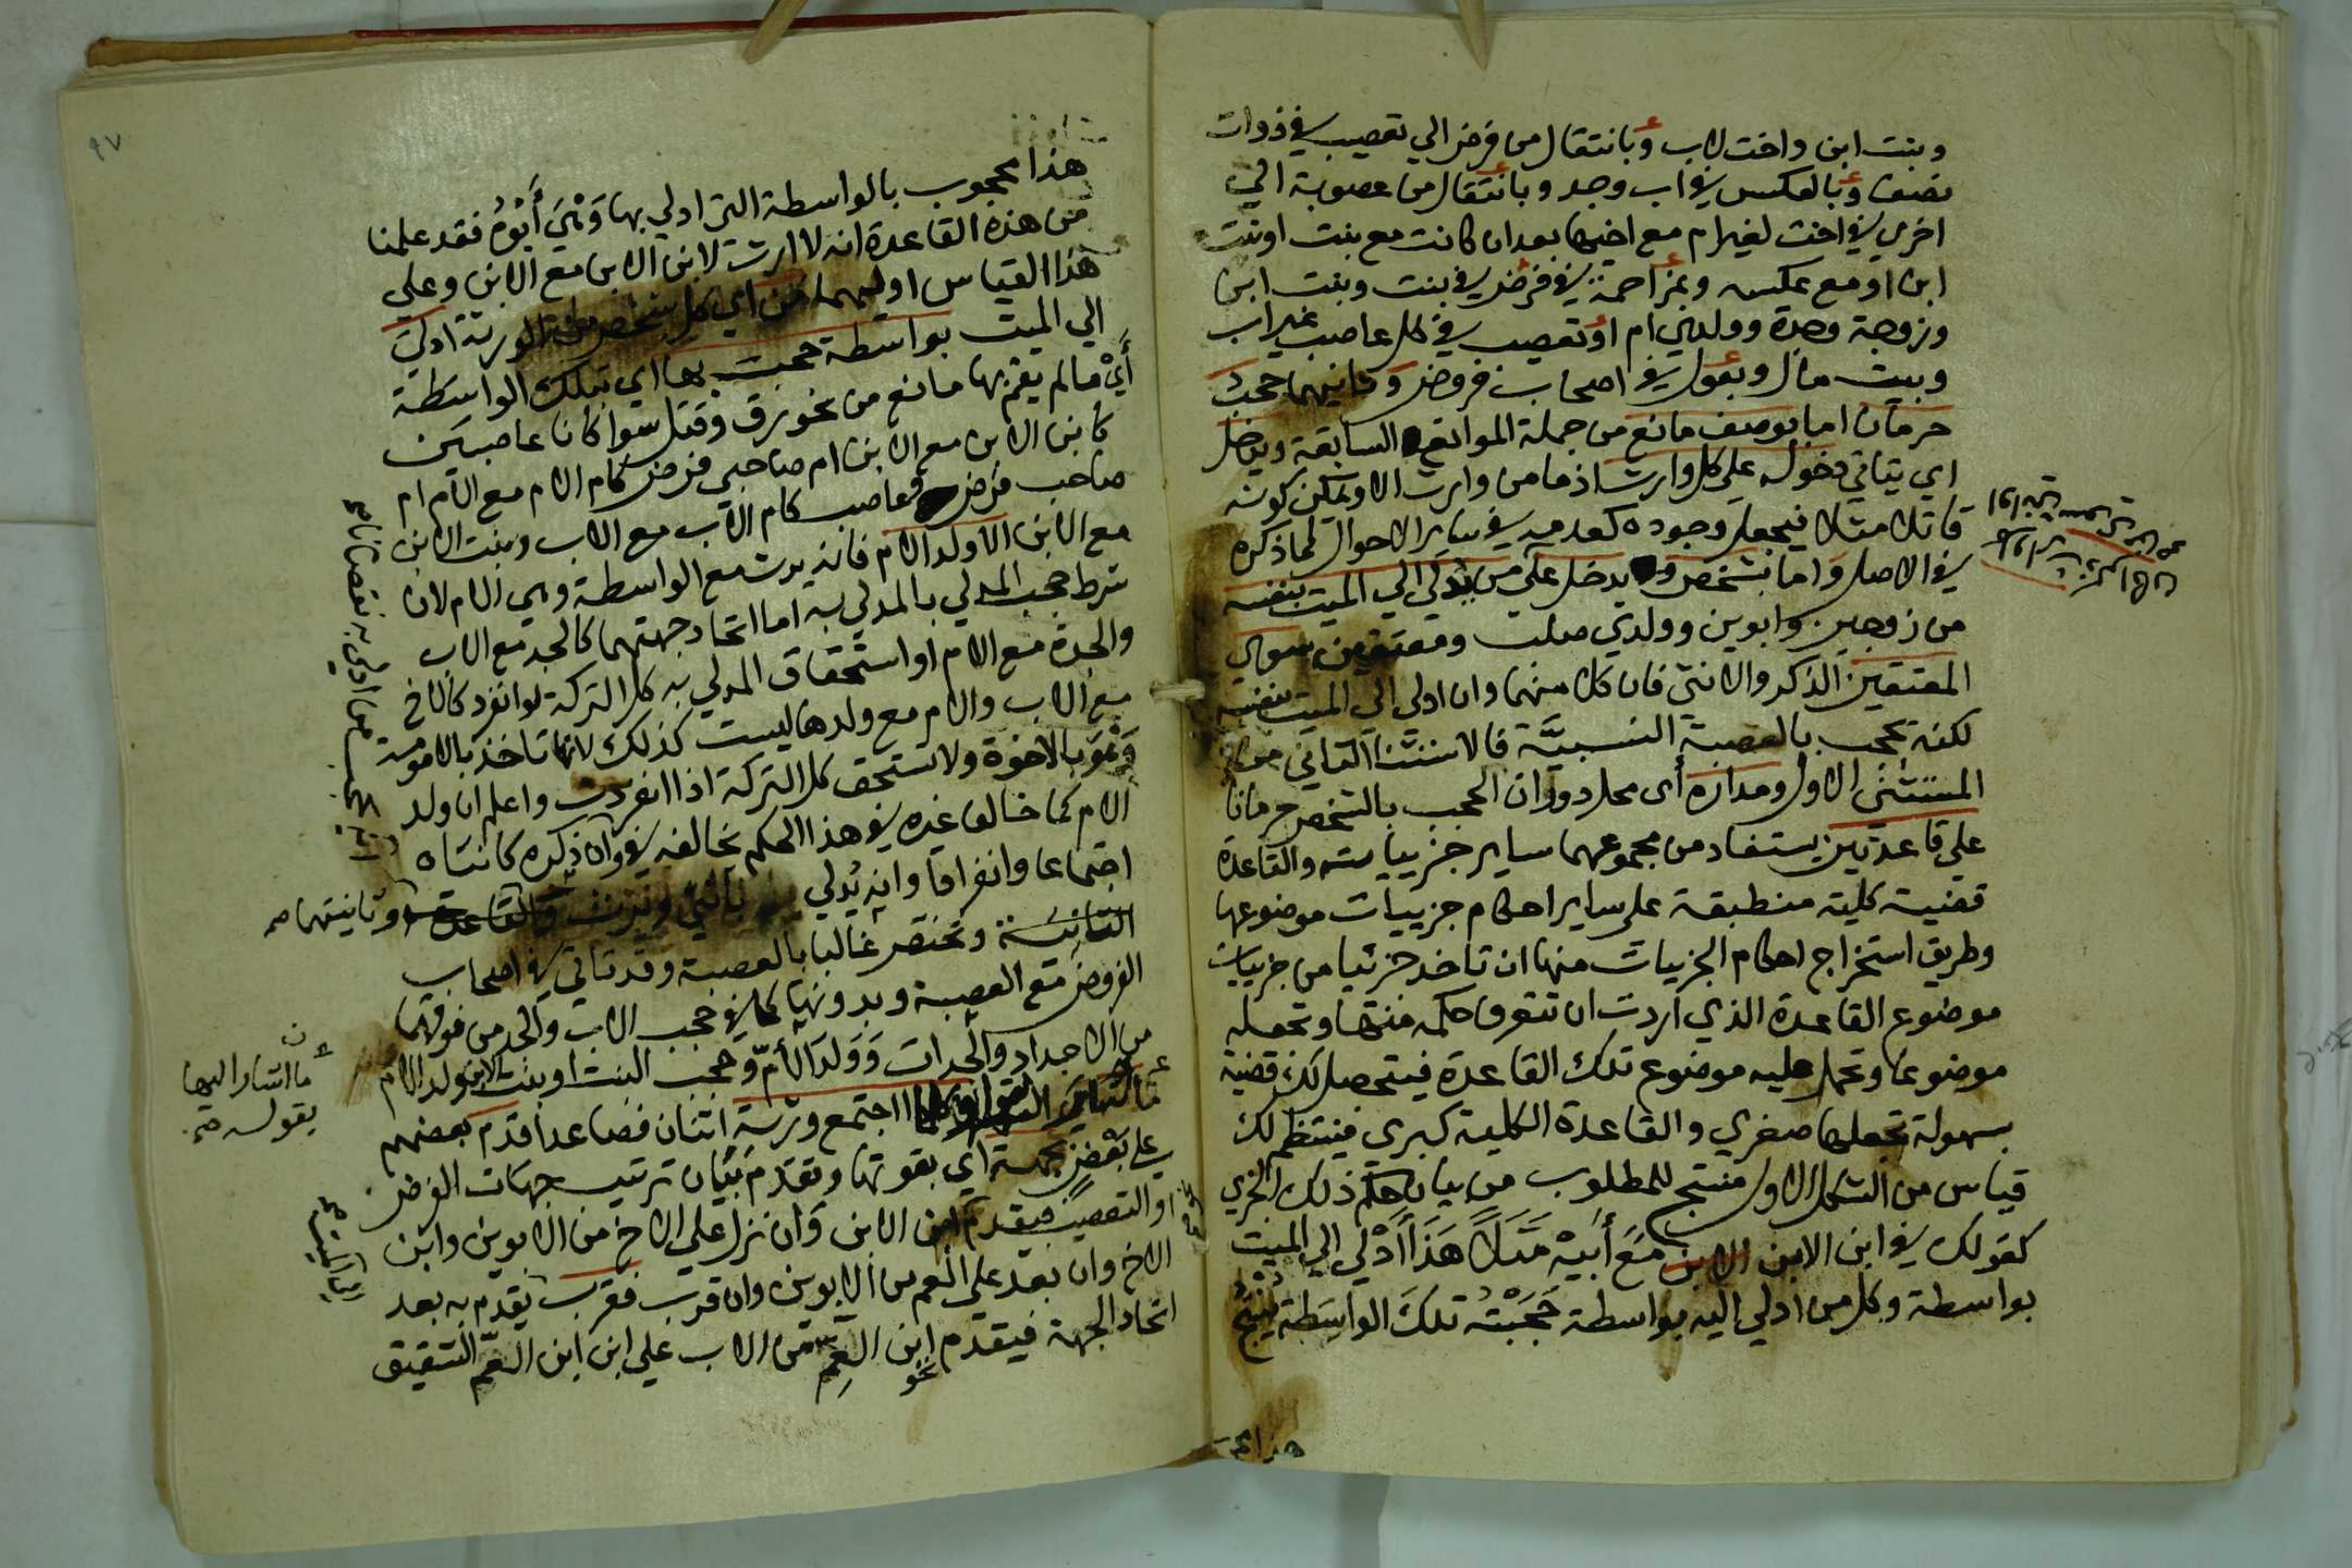 وبنت ابن واخت لاب وبانتقال من فرض الي تعصيب في ذوات
نصف وبالعكس في اب وجد وبانتقال من عصوبة الي
اخري في اخت لغير ام مع اخيها بعد ان كانت مع بنت او بنت
ابن او مع عكسه وبمزاحمة في فرض في بنت وبنت ابن
وزوجة وجدة وولدي ام او تعصيب في كل عاصب غير اب
وبيت مال وبعول في اصحاب فروض وثانيهما حجب
حرمان اما بوصف مانع من جملة الموانع السابقة ويدخل
اي يتاتي دخوله علي كل وارث اذ ما من وارث الا ويمكن كونه
قاتلا مثلا فيجعل وجوده كعدمه في ساير الاحوال لما ذكره
في الاصل واما بشخص ولا يدخل علي من يدلي الي الميت بنفسه
من زوجين وابوين وولدي صلب ومعتقين سوي
المعتقين الذكر والانثي فان كلا منهما وان ادلي الي الميت بنفسه
لكنه يحجب بالعصبة النسبيَّة فالاستثنا الثاني من
المستثني الاول ومداره أي محل دوران الحجب بالشخص حرمانا
علي قاعدتين يستفاد من مجموعهما ساير جزيياته والقاعدة
قضية كلية منطبقة علي ساير احكام جزييات موضوعها
وطريق استخراج احكام الجزيات منها ان تاخذ جزئيا من جزييات
موضوع القاعدة الذي اردت ان تتعرف حكمه منها وتجعله
موضوعا وتحمل عليه موضوع تلك القاعدة فيتحصل لك قضية
بسهولة تجعلها صغري والقاعدة الكلية كبري فينتظم لك
قياس من الشكل الاول منتج للمطلوب من بيان حكم ذلك الجزي
كقولك في ابن الابن مَعَ أَبِيهْ مَثَلًا هَذَا أَدْلي الي الميت
بواسطة وكل من ادلي اليه بواسطة حَجَبَتْهُ تلكَ الواسِطَة يُنْتِجُ
هذا محجوب
٩٧
هذا محجوب بالواسطة التي ادلي بها وَهْيَ أَبُوهُ فقد علمنا
من هذه القاعدة انه لا ارث لابن الابن مع الابن وعلي
هذا القياس اوليهما من اي كل شخص من الورثة ادلي
الي الميت بواسطة حجبت بها اي بتلك الواسطة
أَيْ مالم يقم بها مانع من نحو رق وقتل سوا كانا عاصبين
كابن الابن مع الابن ام صاحبي فرض كام الام مع الام ام
صاحب فرض وعاصب كام الاب مع الاب وبنت الابن
مع الابن الا ولد الام فانه يرث مع الواسطة وهي الام لان
شرط حجب المدلي بالمدلي به اما اتحاد جهتهما كالجد مع الاب
والجدة مع الام او استحقاق المدلي به كل التركة لو انفرد كالاخ
مع الاب والام مع ولدها ليست كذلك لانها تاخذ بالامومة
وَهْوَ بالاخوة ولا تستحق كل التركة اذا انفردت واعلم ان ولد
الام كما خالف غيره في هذا الحكم يخالفه في ان ذكره كانثاه
اجتماعا وانفرادا وانه يُدلي بانثي ويرث وثانيتهما صح
الثانية وتختص غالبا بالعصبة وقد تاتي في اصحاب
الفروض مع العصبة وبدونها كما في حجب الاب والجد من فوقهما
من الاجداد والجدات وَوَلَدَ الأُمّ وحجب البنت او بنت الابن ولد الام
اجتمع ورثة اثنان فصاعدا قدم بعضهم
علي بَعْضٍ بجهة اي بقوتها وتقدم بيان ترتيب جهات الفرض
او التعصيب فيقدم ابن الابن وَان نزل علي الاخ من الابوين وابن
الاخ وان بعد علي العم من الابوين وان قرب فقرب يقدم به بعد
اتحاد الجهة فيقدم ابن العم من الاب علي ابن ابن العمّ الشقيق
نحو
ما اشار اليها
بقوله صح